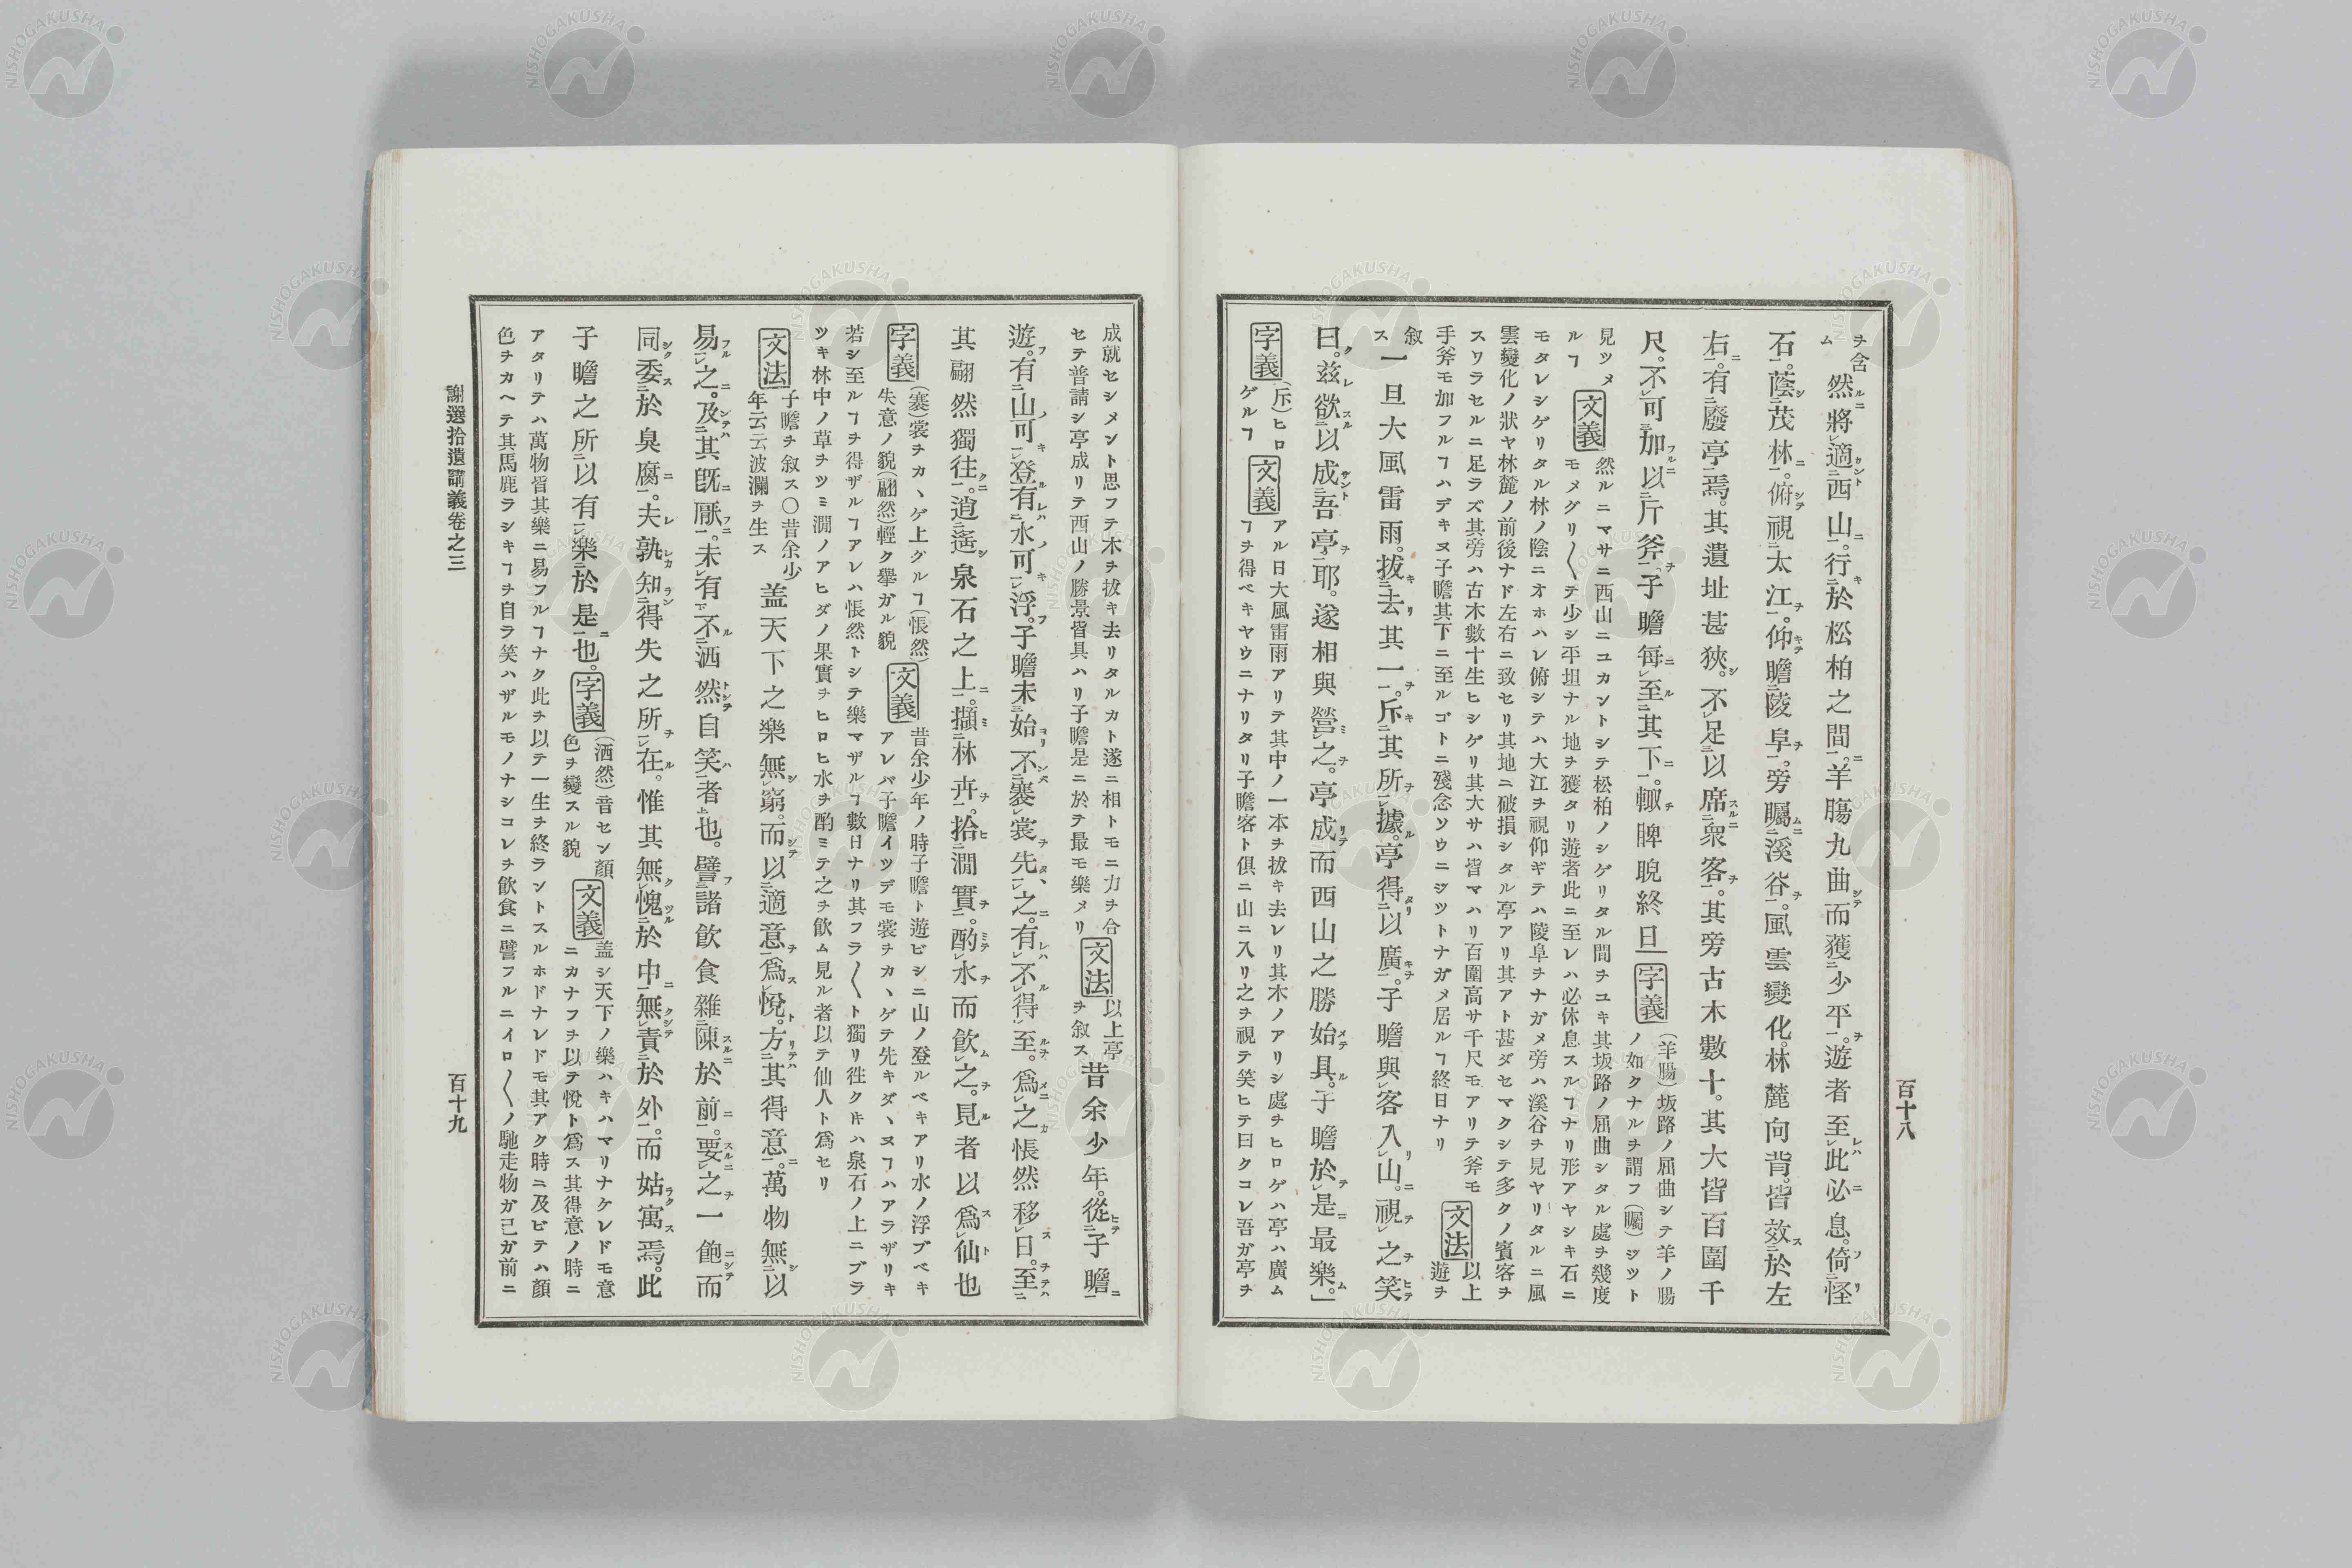 百十八
ヲ含ム
然將適西山。行於松柏之間。羊膓九曲而獲少平。遊者至此必息。倚怪
石。蔭茂林。俯視大江。仰瞻陵阜。旁矚溪谷。風雲變化。林麓向背。皆效於左
右。有廢亭焉。其遺址甚狹。不足以席衆客。其旁古木數十。其大皆百圍千
尺。不可加以斤斧。子瞻每至其下。輙睥睨終日
字義
(羊腸)坂路ノ屈曲シテ羊ノ腸
ノ如クナルヲ謂フ(矚)ジツト
見ツメ
ルヿ
文義
然ルニマサニ西山ニユカントシテ松柏ノシゲリタル間ヲユキ其坂路ノ屈曲シタル處ヲ幾度
モメグリ〱テ少シ平坦ナル地ヲ獲タリ遊者此ニ至レハ必休息スルヿナリ形アヤシキ石ニ
モタレシゲリタル林ノ陰ニオホハレ俯シテハ大江ヲ視仰ギテハ陵阜ヲナガメ旁ハ溪谷ヲ見ヤリタルニ風
雲變化ノ狀ヤ林麓ノ前後ナド左右ニ致セリ其地ニ破損シタル亭アリ其アト甚ダセマクシテ多クノ賓客ヲ
スワラセルニ足ラズ其旁ハ古木數十生ヒシゲリ其大サハ皆マハリ百圍高サ千尺モアリテ斧モ
手斧モ加フルヿハデキヌ子瞻其下ニ至ルゴトニ殘念ソウニジツトナガメ居ルヿ終日ナリ
文法
以上
遊ヲ
叙
ス
一旦大風雷雨。拔去其一。斥其所據。亭得以廣。子瞻與客入山。視之笑
曰。茲欲以成吾亭耶。遂相與營之。亭成而西山之勝始具。子瞻於是最樂。」
字義
(斥)ヒロ
ゲルヿ
文義
アル日大風雷雨アリテ其中ノ一本ヲ拔キ去レリ其木ノアリシ處ヲヒロゲハ亭ハ廣ム
ヿヲ得ベキヤウニナリタリ子瞻客ト俱ニ山ニ入リ之ヲ視テ笑ヒテ曰クコレ吾ガ亭ヲ
成就セシメント思フテ木ヲ拔キ去リタルカト遂ニ相トモニ力ヲ合
セテ普請シ亭成リテ西山ノ勝景皆具ハリ子瞻是ニ於テ最モ樂メリ
文法
以上亭
ヲ叙ス
昔余少年。從子瞻
遊。有山可登。有水可浮。子瞻未始不褰裳先之。有不得至。爲之悵然移日。至
其翩然獨往。逍遙泉石之上。擷林卉。拾澗實。酌水而飮之。見者以爲仙也
字義
(褰)裳ヲカヽゲ上グルヿ(悵然)
失意ノ貌(翩然)輕ク擧ガル貌
文義
昔余少年ノ時子瞻ト遊ビシニ山ノ登ルベキアリ水ノ浮ブベキ
アレバ子瞻イツデモ裳ヲカヽゲテ先キダヽヌヿハアラザリキ
若シ至ルヿヲ得ザルヿアレハ悵然トシテ樂マザルヿ數日ナリ其フラ〱ト獨リ徃クキハ泉石ノ上ニブラ
ツキ林中ノ草ヲツミ澗ノアヒダノ果實ヲヒロヒ水ヲ酌ミテ之ヲ飮ム見ル者以テ仙人ト爲セリ
文法
子瞻ヲ叙ス〇昔余少
年云云波瀾ヲ生ス
盖天下之樂無窮。而以適意爲悅。方其得意。萬物無以
易之。及其旣厭。未有不洒然自笑者也。譬諸飮食雜陳於前。要之一飽而
同委於臭腐。夫孰知得失之所在。惟其無愧於中。無責於外。而姑寓焉。此
子瞻之所以有樂於是也。
字義
(洒然)音セン顏
色ヲ變スル貌
文義
盖シ天下ノ樂ハキハマリナケレドモ意
ニカナフヲ以テ悅トト爲ス其得意ノ時ニ
アタリテハ萬物皆其樂ニ易フルヿナク此ヲ以テ一生ヲ終ラントスルホドナレドモ其アク時ニ及ビテハ顏
色ヲカヘテ其馬鹿ラシキヿヲ自ラ笑ハザルモノナシコレヲ飮食ニ譬フルニイロ〱ノ馳走物ガ己ガ前ニ
謝選拾遺講義卷之三
百十九